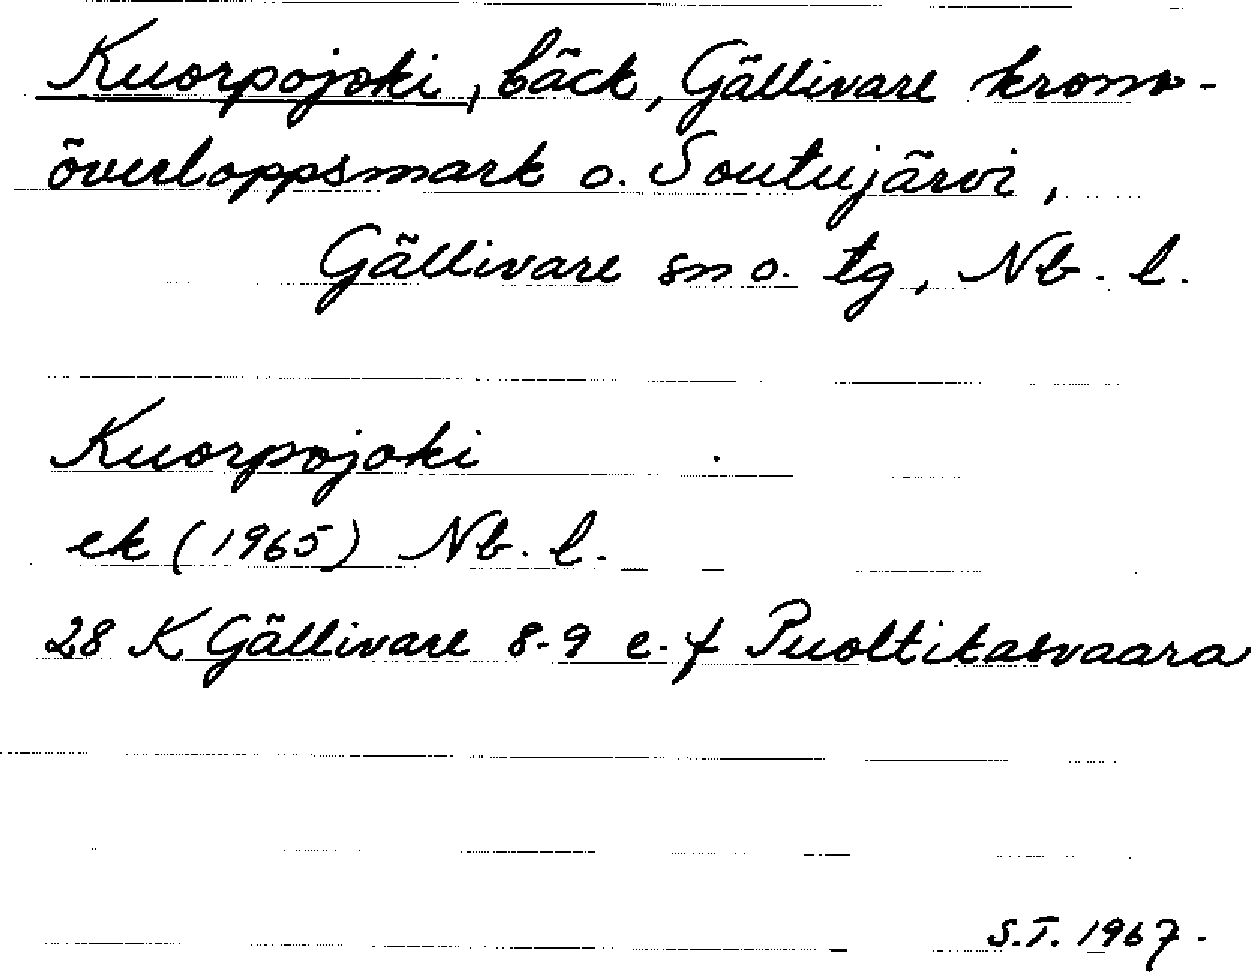 Kuorpojoki, bäck, Gällivare krono-
överloppsmark o. Soutujärvi,
Gällivare sn o. tg, Nb. l.
Kuorpojoki
ek (1965) Nb. l.
28 K Gällivare 8-9 e-f Puoltikasvaara
S.T. 1967.